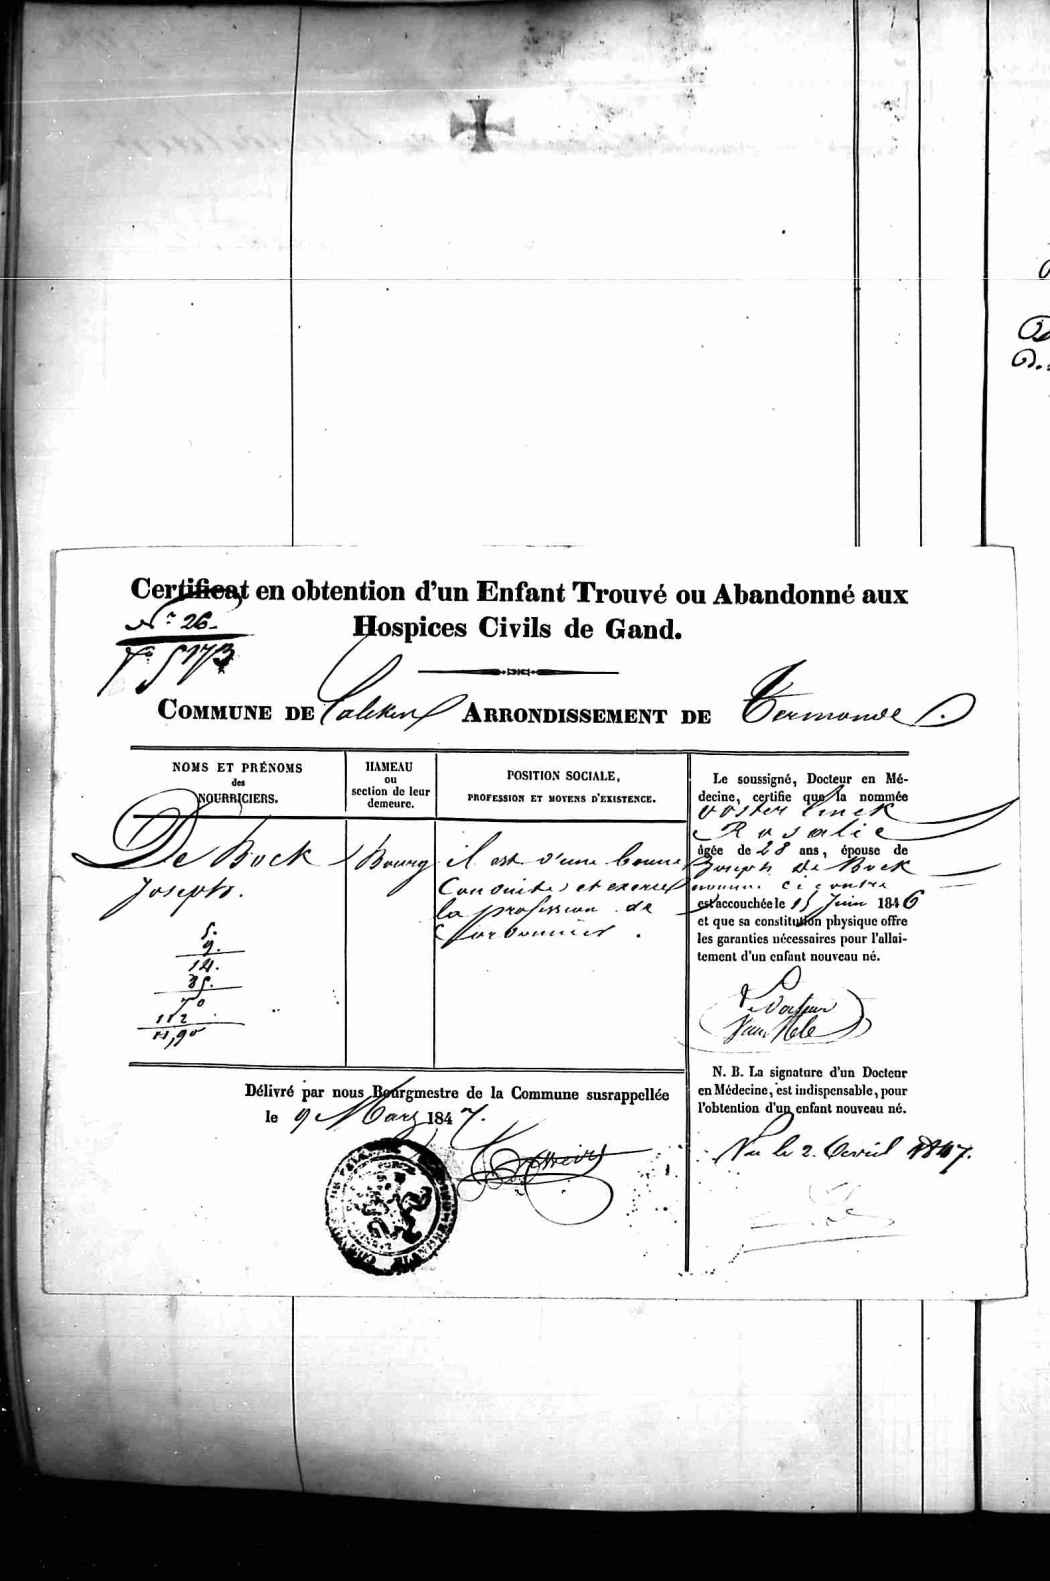 Certificat en obtention d'un Enfant Trouvé ou Abandonné aux
Hospices Civils de Gand.
N.º 26.
COMMUNE DE Calcken ARRONDISSEMENT DE Termonde.
NOMS ET PRÉNOMS
des
NOURRICIERS.
HAMEAU
ou
section de leur
demeure.
POSITION SOCIALE,
PROFESSION ET MOYENS D'EXISTENCE.
De Bock
Joseph.
5.
9.
14.
35.
70
112
Bourg
il est d'une bonne
Conduite, et exerce
la profession de
Le soussigné, Docteur en Mé-
decine, certifie que la nommée
Oosterlinck
Rosalie
âgée de 28 ans, épouse de
Joseph de Bock
ci contre
est accouchée le 15 Juin 1846
et que sa constitution physique offre
les garanties nécessaires pour l'allai-
tement d'un enfant nouveau né.
Docteur
N. B. La signature d'un Docteur
en Médecine, est indispensable, pour
l'obtention d'un enfant nouveau né.
Vu le 2. Avril 1847.
Délivré par nous Bourgmestre de la Commune susrappellée
le 9 Mars 1847.